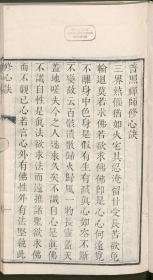 普照禪師修心訣
三界熱惱猶如火宅其忍淹留甘受長苦欲免
輪廻莫若求佛若欲求佛佛即是心心何遠覓
不離身中色身是假有生有滅真心如空不斷
不變故云百骸潰散歸火歸風一物長靈蓋天
蓋地嗟夫今之人迷來久矣不識自心是真佛
不識自性是真法欲求法而遠推諸聖欲求佛
而不觀己心若言心外有佛性外有法堅執此
修心訣